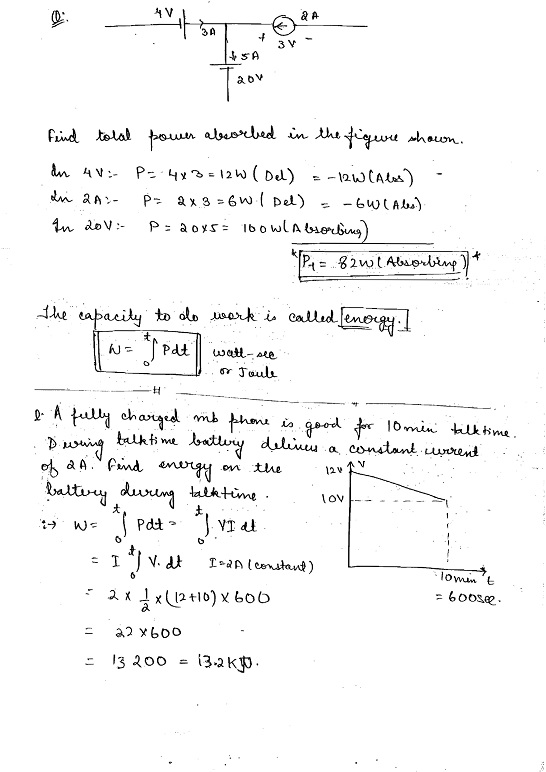 Q:
4V
3A
2A
+ 3V -
↓5A
20V
Find total power absorbed in the figure shown.
In 4V:- P = 4x3 = 12W (Del) = -12W (Abs) -
In 2A:- P = 2x3 = 6W (Del) = -6W (Abs)
In 20V:- P = 20x5 = 100W (Absorbing)
* P_T = 82W (Absorbing) *
The capacity to do work is called energy.
W = ∫₀ᵗ Pdt watt-sec
or Joule
H
Q. A fully charged mb phone is good for 10min talktime.
During talktime battery delivers a constant current
of 2A. Find energy on the
battery during talktime.
12V V
10V
10min t
= 600sec.
:→ W = ∫₀ᵗ Pdt = ∫₀ᵗ VI dt
= I ∫₀ᵗ V. dt I = 2A (constant)
= 2 x 1/2 x (12+10) x 600
= 22 x 600
= 13200 = 13.2KJ.